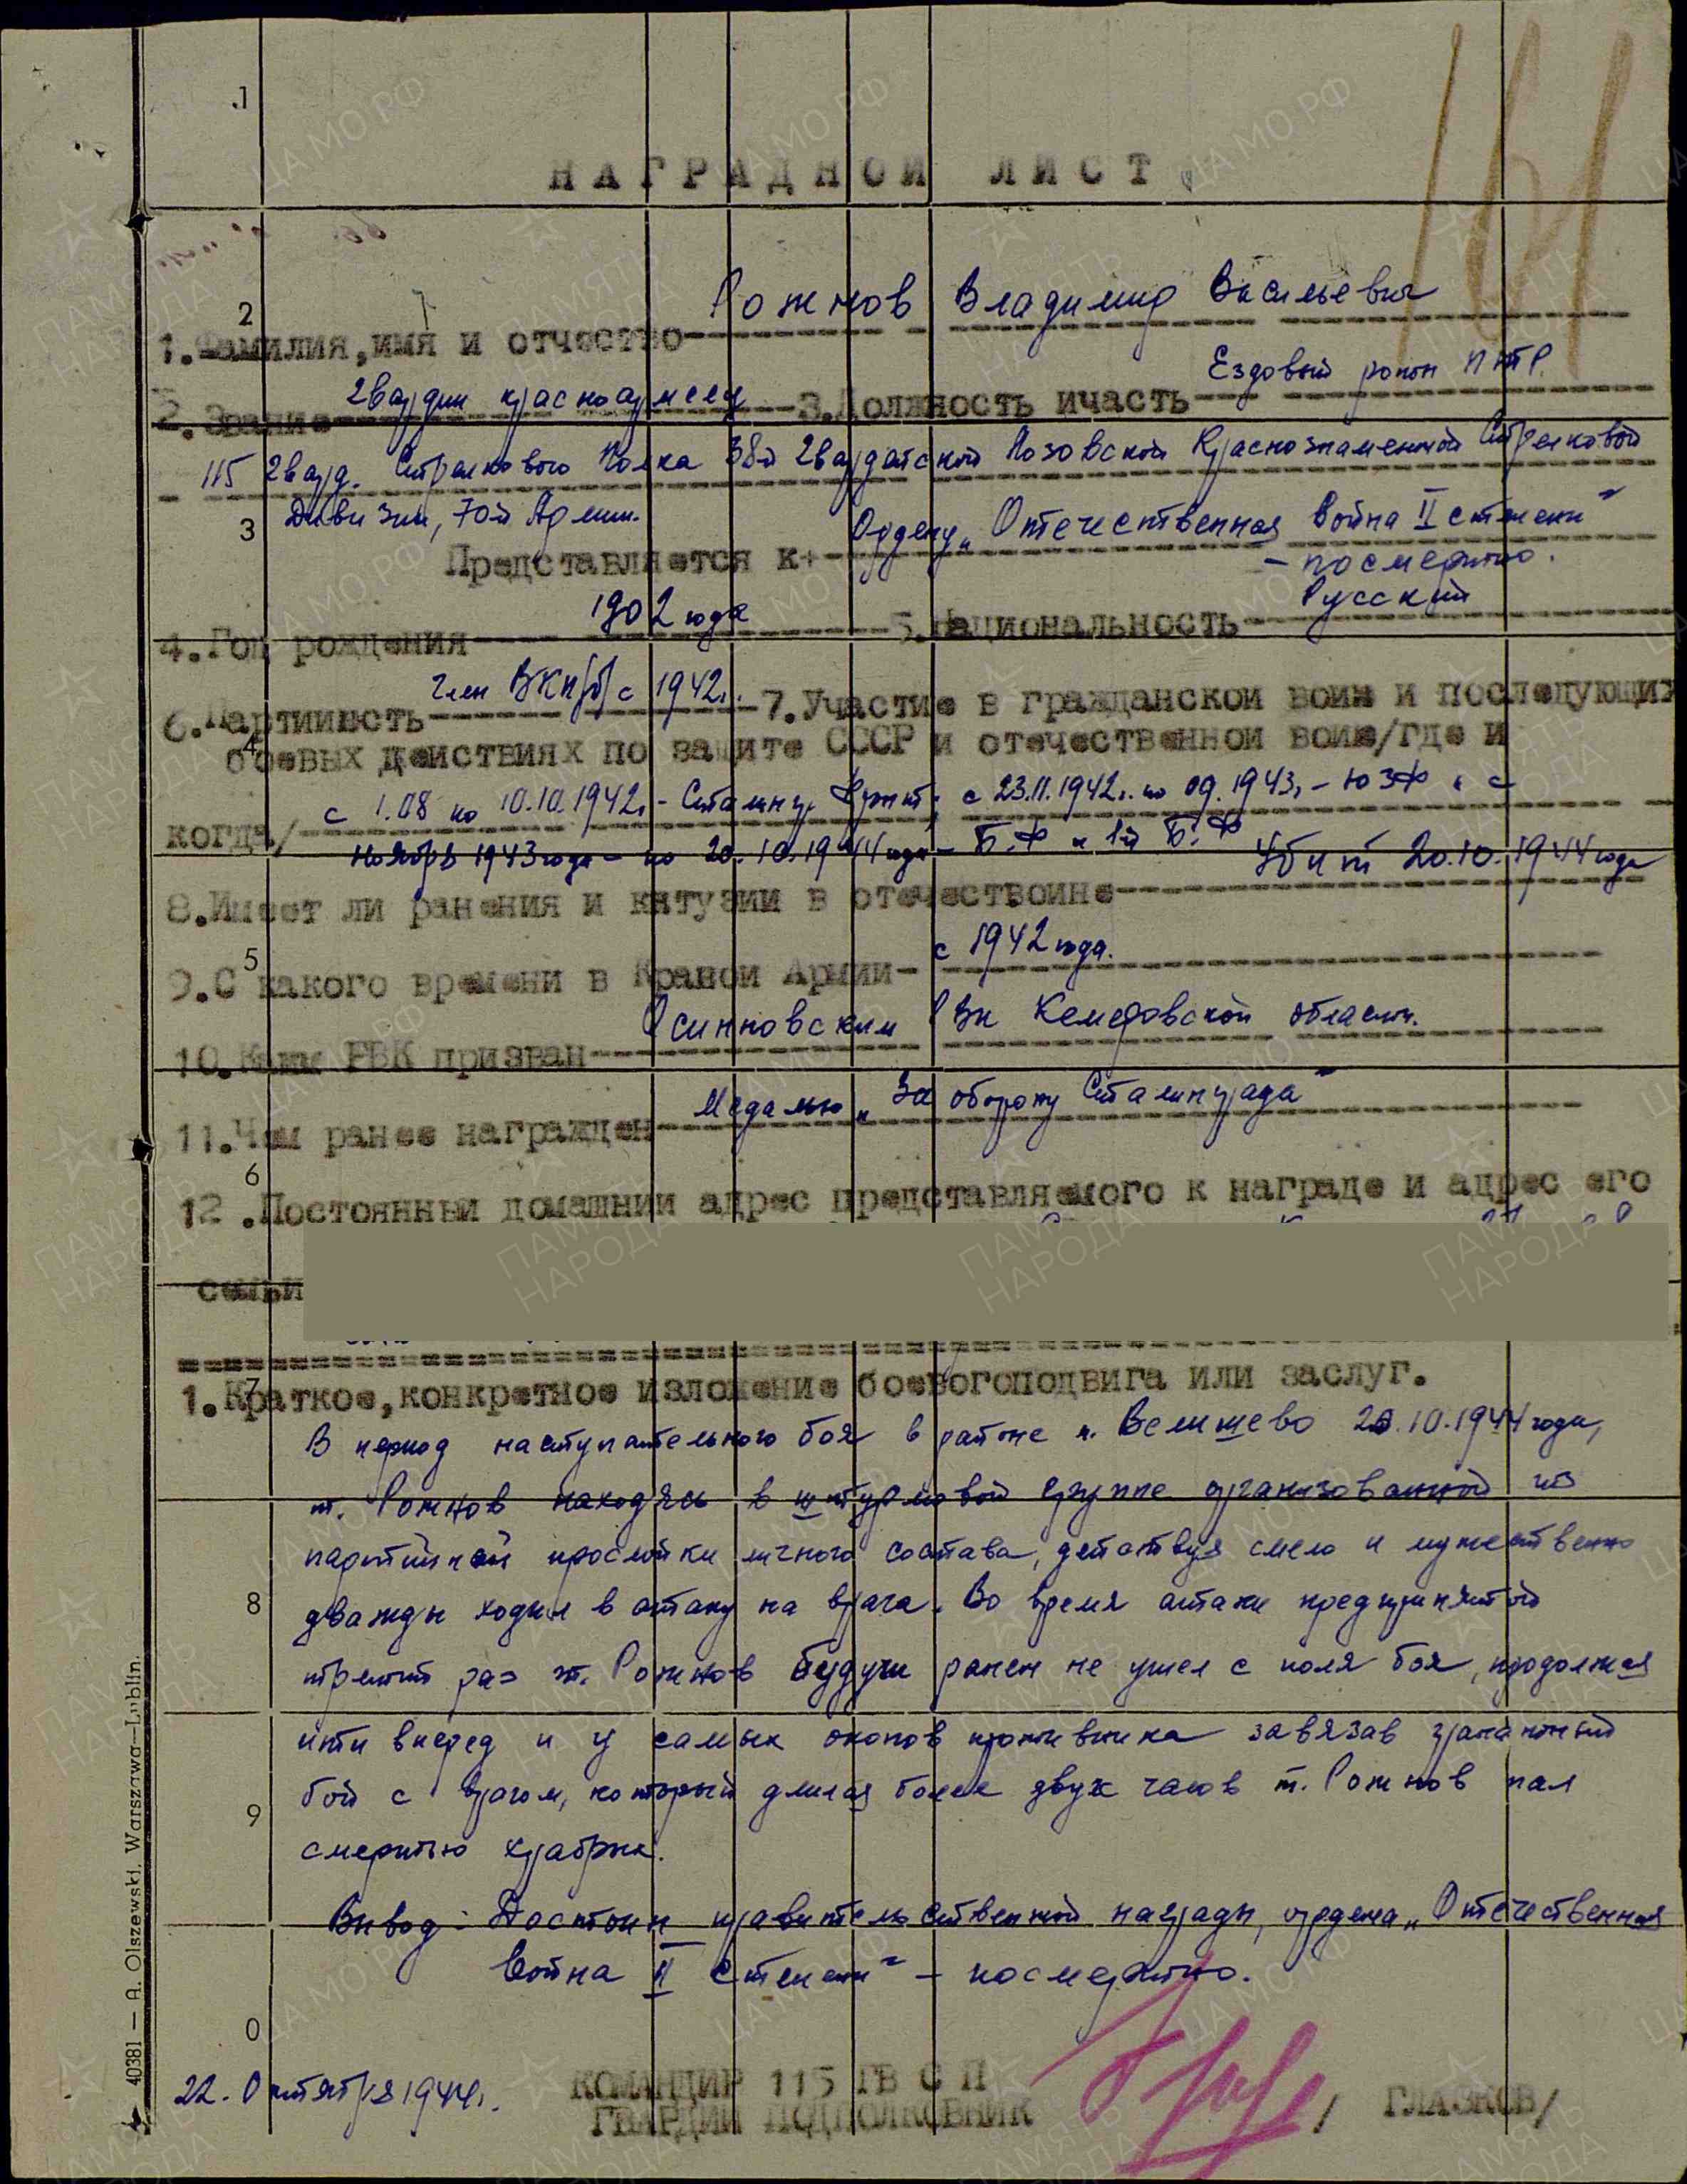 НАГРАДНОЙ ЛИСТ
Рожнов Владимир Васильевич
1.Фамилия,имя и отчество
2.Звание гвардии красноармеец 3.Должность ичасть Ездовый роты ПТР.
115 Гвард. Стрелкового Полка 38й Гвардейской Лозовской Краснознаменной Стрелковой
Дивизии, 70й Армии.
Представляется к Ордену „Отечественная Война II степени"
- посмертно.
4.Год рождения 1902 года 5.Национальность Русский
6.Партийность член ВКП/б/ с 1942г. 7.Участие в гражданской войне и последующих
боевых действиях по защите СССР и отечественной войне/где и
когда/ с 1.08 по 10.10.1942г.- Сталингр. Фронт; с 23.11.1942г. по 09.1943г.- ЮЗФ и с
ноября 1943 года - по 20.10.1944 года - Б.Ф и 1й Б.Ф
8.Имеет ли ранения и кнтузии в отечествоине Убит 20.10.1944 года
9.С какого времени в Краной Армии- с 1942 года.
10.Каким РВК призван Осинновским РВК Кемеровской области.
11.Чем ранее награжден Медалью „За оборону Сталинграда"
12.Постоянный домашний адрес представляемого к награде и адрес его
семьи
1.Краткое,конкретное изложение боевогоподвига или заслуг.
В период наступательного боя в районе п. Велишево 20.10.1944 года,
т. Рожнов находясь в штурмовой группе организованной из
партийной прослойки личного состава, действуя смело и мужественно
дважды ходил в атаку на врага. Во время атаки предпринятой
третий раз т. Рожнов будучи ранен не ушел с поля боя, продолжая
итти вперед и у самых окопов противника завязав гранатный
бой с врагом, который длился более двух часов т. Рожнов пал
смертью храбрых.
Вывод: Достоин правительственной награды, ордена „Отечественная
Война II степени" - посмертно.
22. Октября 1944г.
КОМАНДИР 115 ГВ С П
ГВАРДИИ ПОДПОЛКОВНИК / ГЛАЗКОВ/
40381 — A. Olszewski. Warszawa—Lublin.
1
2
3
4
5
6
7
8
9
0
ЦА МО РФ
ПАМЯТЬ НАРОДА